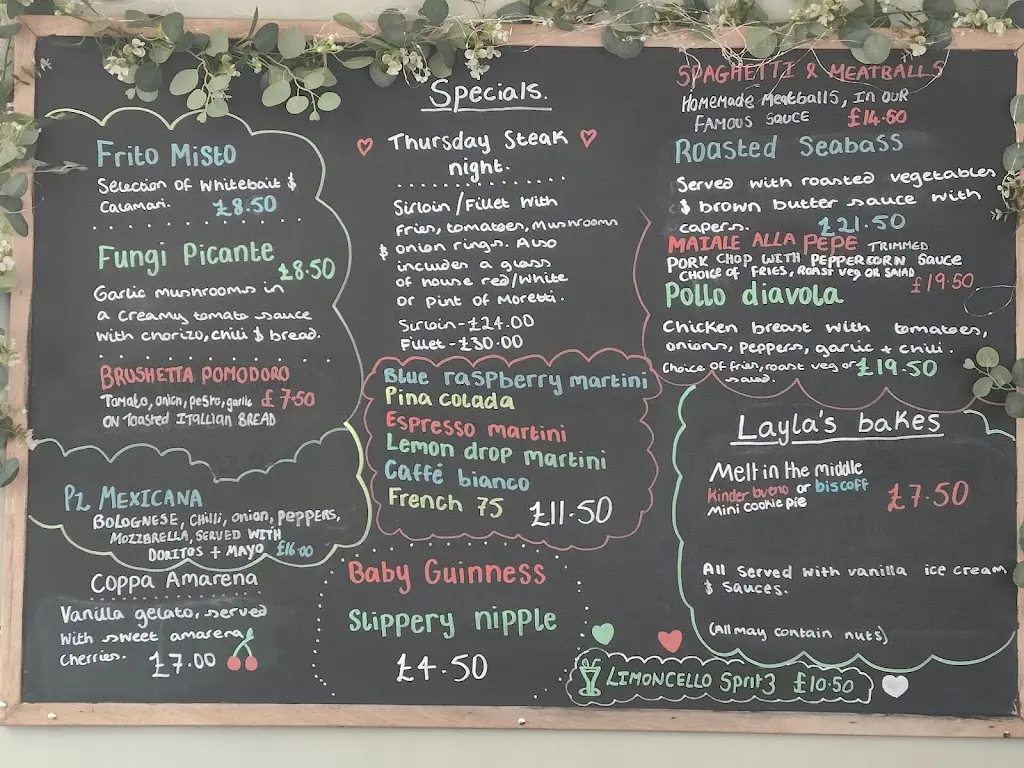 Frito Misto
Selection of Whitebait &
Calamari. £8.50
Fungi Picante
£8.50
Garlic mushrooms in
a creamy tomato sauce
with chorizo, chili & bread.
BRUSHETTA POMODORO
Tomato, onion, pesto, garlic £7.50
ON Toasted ITALLIAN BREAD
PZ MEXICANA
BOLOGNESE, CHILLI, onion, PEPPERS,
MOZZERELLA, SERVED WITH
DORITOS + MAYO £16.00
Coppa Amarena
Vanilla gelato, served
with sweet amarena
cherries. £7.00
Specials.
Thursday Steak
night.
Sirloin/Fillet with
fries, tomatoes, mushrooms
& onion rings. Also
includes a glass
of house red/white
or pint of Moretti.
Sirloin - £24.00
Fillet - £30.00
Blue raspberry martini
Pina colada
Espresso martini
Lemon drop martini
Caffé bianco
French 75 £11.50
Baby Guinness
Slippery nipple
£4.50
SPAGHETTI & MEATBALLS
Homemade Meatballs, IN OUR
FAMOUS SAUCE £14.50
Roasted Seabass
Served with roasted vegetables
& brown butter sauce with
capers. £21.50
MAIALE ALLA PEPE TRIMMED
PORK CHOP WITH PEPPERCORN SAUCE
CHOICE OF FRIES, ROAST VEG OR SALAD £19.50
Pollo diavola
Chicken breast with tomatoes,
onions, peppers, garlic + chili.
Choice of fries, roast veg or £19.50
salad.
Layla's bakes
Melt in the middle
Kinder bueno or biscoff
Mini cookie pie £7.50
All Served with vanilla ice cream
& Sauces.
(All may contain nuts)
LIMONCELLO Spritz £10.50